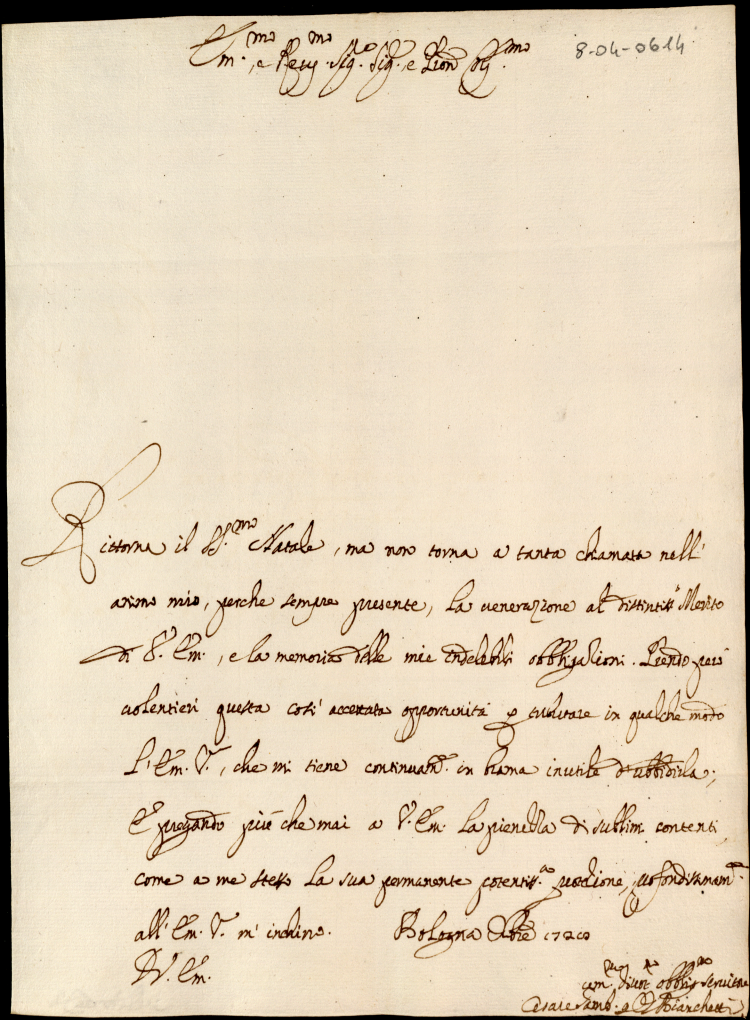 Em.mo e Rev.mo Sig.r Sig.r e Pron Col.mo
8-04-0614
Rittorna il SS.mo Natale, ma non torna a tanta chiamata nell'
animo mio, perche sempre presente, la venerazione al distintis.o Merito
di V. Em., e la memoria delle mie indelebili obbligazioni. Prendo però
volentieri questa così accertata opportunità p tributare in qualche modo
l'Em. V., che mi tiene continuam.e in brama inutile d'ubbidirla;
E pregando più che mai a V. Em. la pienezza di sublimi contenti,
come a me stesso la sua permanente potentis.a protezione, profondissimam.e
all'Em. V. m'inchino. Bologna Xbre
D V. Em.
um.mo divot.o obblig.mo servitore
Cesare Bianchetti